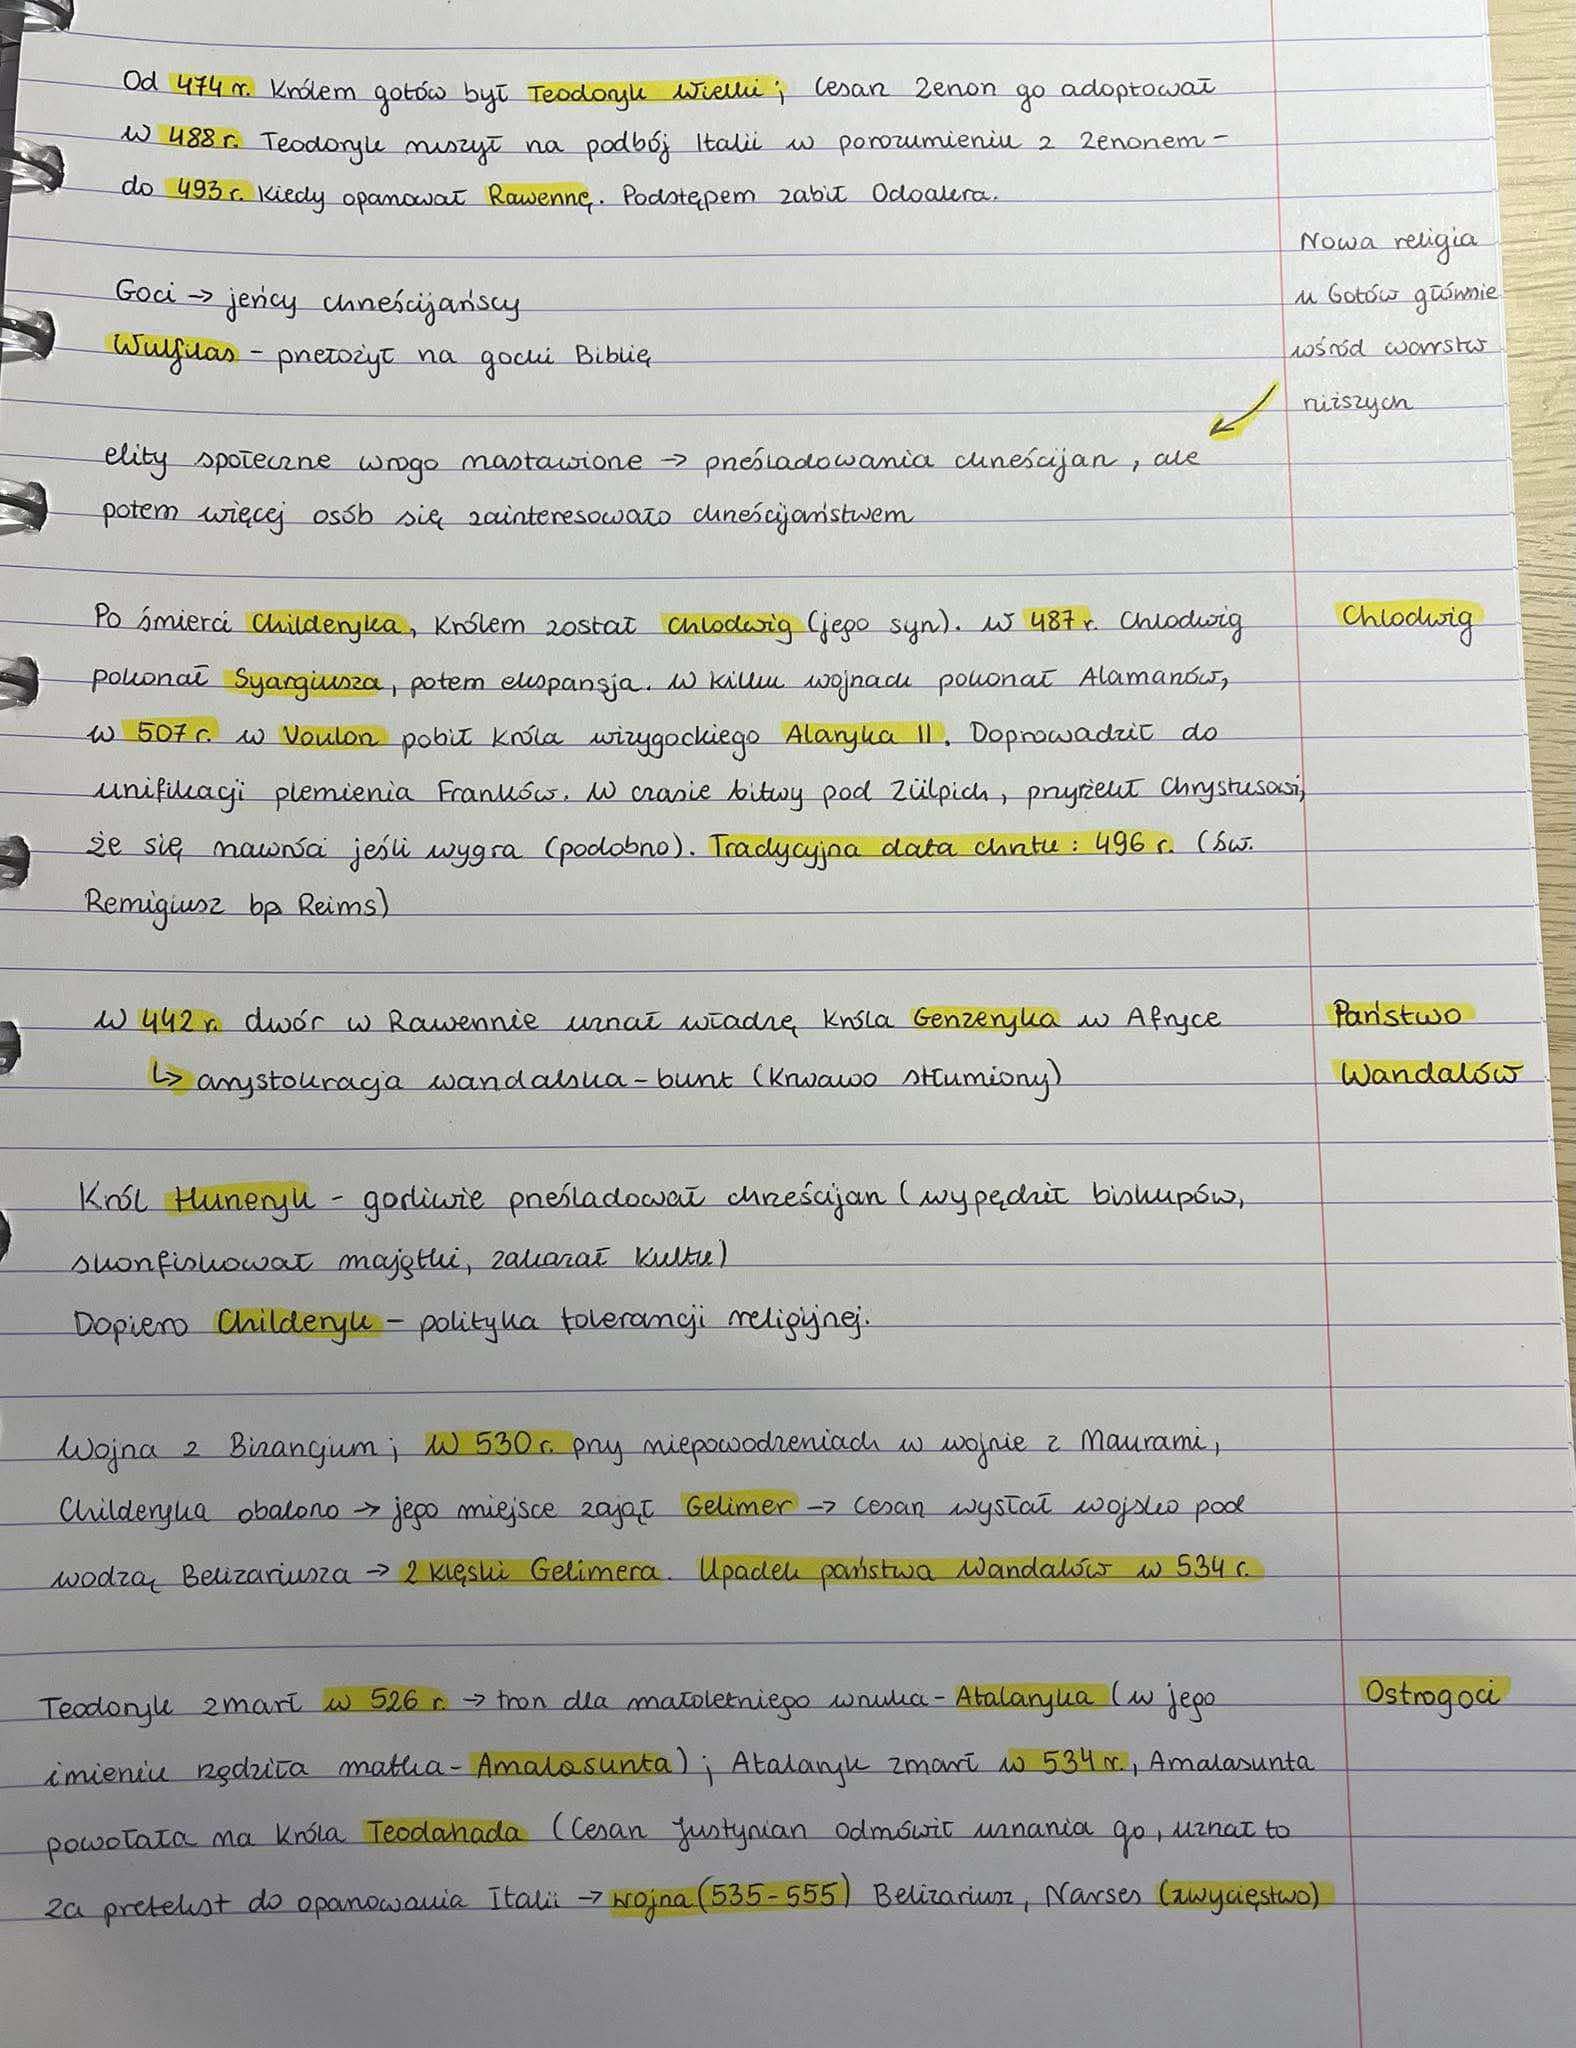 Od 474 r. Królem gotów był Teodoryk Wielki; Cesarz Zenon go adoptował
w 488 r. Teodoryk ruszył na podbój Italii w porozumieniu z Zenonem -
do 493 r. kiedy opanował Rawennę. Podstępem zabił Odoakra.
Nowa religia
u Gotów głównie
wśród warstw
niższych
Goci → jeńcy chrześcijańscy
Wulfilas - przełożył na gocki Biblię
elity społeczne wrogo nastawione → prześladowania chrześcijan, ale
potem więcej osób się zainteresowało chrześcijaństwem
Chlodwig
Po śmierci Childeryka, Królem został Chlodwig (jego syn). W 487 r. Chlodwig
pokonał Syargiusza, potem ekspansja. W kilku wojnach pokonał Alamanów,
w 507 r. w Voulon pobił króla wizygockiego Alaryka II. Doprowadził do
unifikacji plemienia Franków. W czasie bitwy pod Zülpich, przyrzekł Chrystusowi,
że się nawróci jeśli wygra (podobno). Tradycyjna data chrztu: 496 r. (św.
Remigiusz bp Reims)
Państwo
Wandalów
W 442 r. dwór w Rawennie uznał władzę króla Genzeryka w Afryce
↳ arystokracja wandalska - bunt (krwawo stłumiony)
Król Huneryk - gorliwie prześladował chrześcijan (wypędził biskupów,
skonfiskował majątki, zakazał kultu)
Dopiero Childeryk - polityka tolerancji religijnej.
Wojna z Bizancjum; W 530 r. przy niepowodzeniach w wojnie z Maurami,
Childeryka obalono → jego miejsce zajął Gelimer → Cesarz wysłał wojsko pod
wodzą Belizariusza → 2 klęski Gelimera. Upadek państwa Wandalów w 534 r.
Ostrogoci
Teodoryk zmarł w 526 r. → tron dla małoletniego wnuka - Atalaryka (w jego
imieniu rządziła matka - Amalasunta); Atalaryk zmarł w 534 r., Amalasunta
powołała na króla Teodahada (Cesarz Justynian odmówił uznania go, uznał to
za pretekst do opanowania Italii → wojna (535-555) Belizariusz, Narses (zwycięstwo)